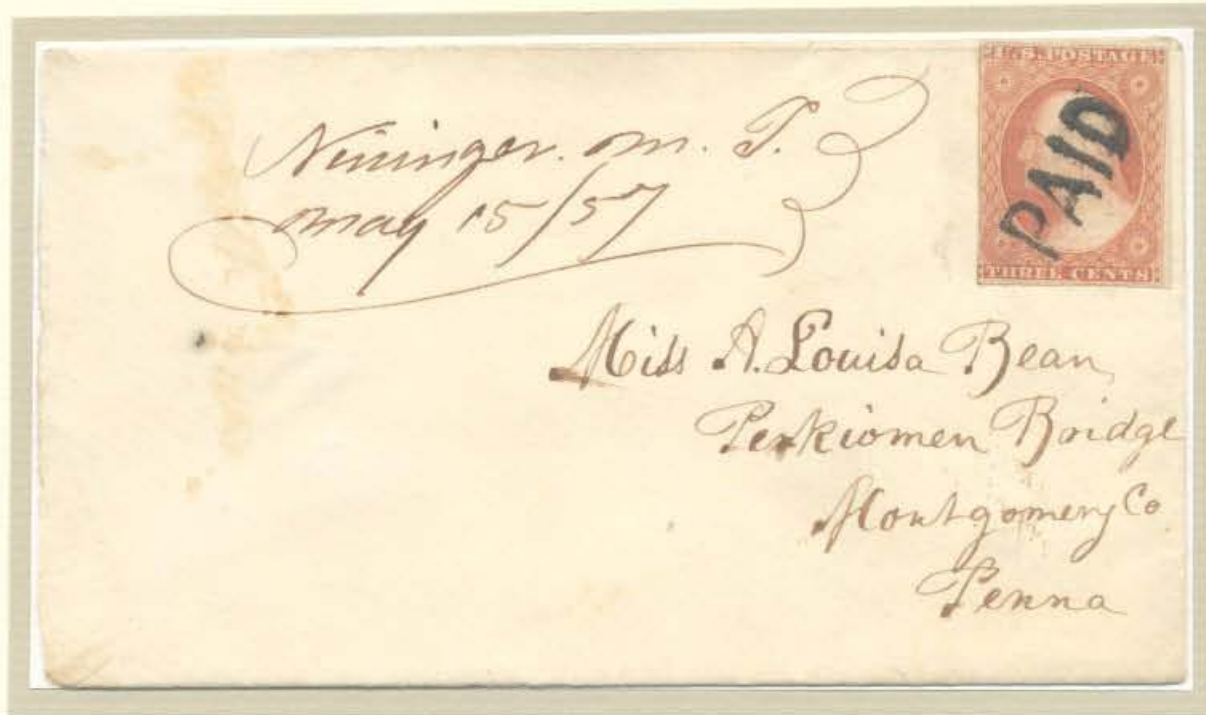 Nininger. M. T.
May 15/57
U.S. POSTAGE
PAID
THREE CENTS
Miss A. Louisa Bean
Perkiomen Bridge
Montgomery Co
Penna